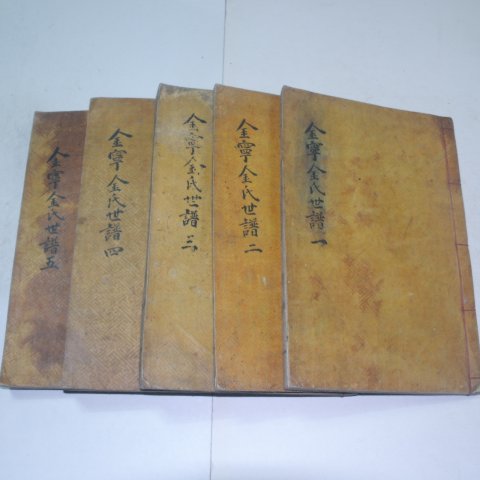 金寧金氏世譜 一
金寧金氏世譜 二
金寧金氏世譜 三
金寧金氏世譜 四
金寧金氏世譜 五